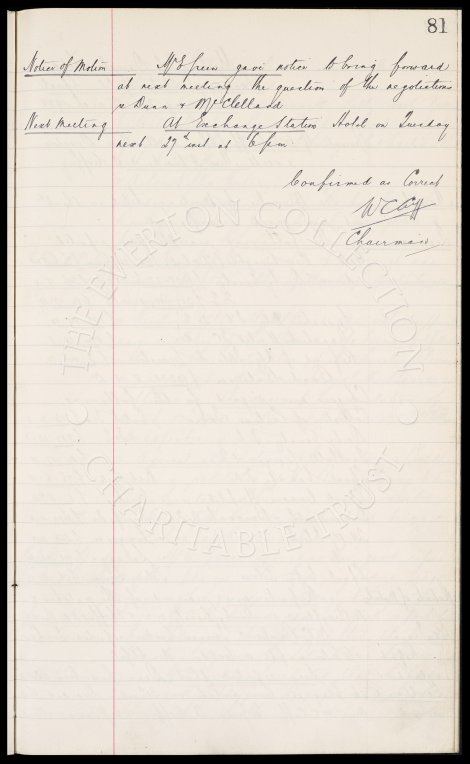 81
Notice of Motion Mr E Green gave notice to bring forward
at next meeting the question of the negotiations
re Dunn & McClelland
Next Meeting At Exchange Station Hotel on Tuesday
next 27th inst at 6 pm
Confirmed as Correct
W C Cuff
Chairman
THE EVERTON COLLECTION
CHARITABLE TRUST